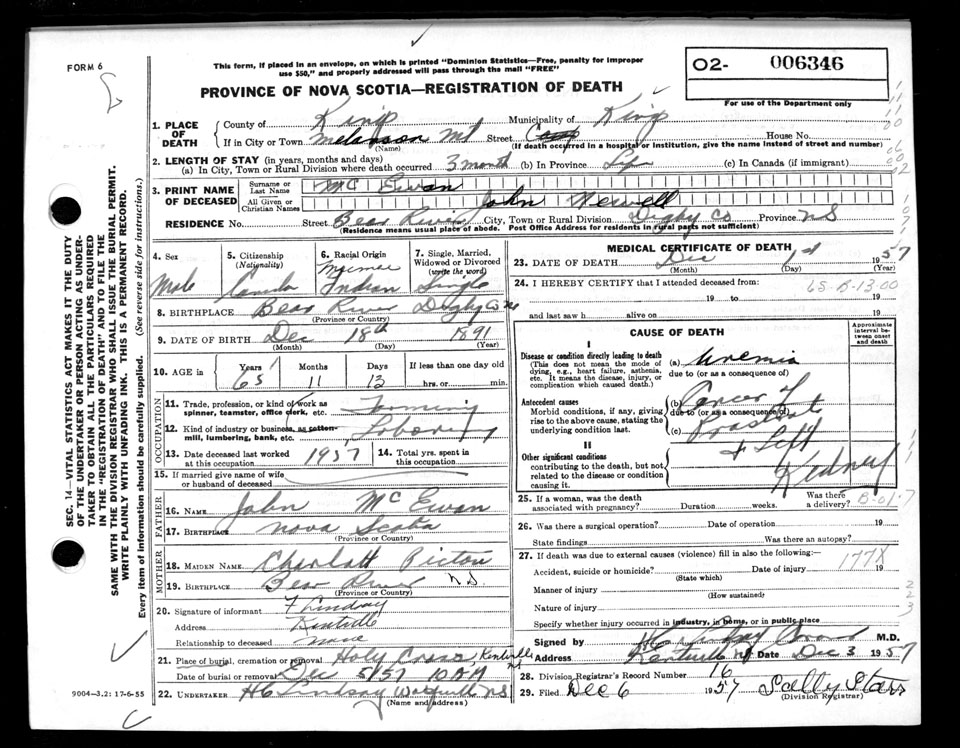 FORM 6
This form, if placed in an envelope, on which is printed "Dominion Statistics—Free, penalty for improper
use $50," and properly addressed will pass through the mail "FREE"
PROVINCE OF NOVA SCOTIA—REGISTRATION OF DEATH
O2- 006346
For use of the Department only
1. PLACE OF DEATH
County of Kings Municipality of Kings
If in City or Town Melanson Mt Street House No.
(Name) (If death occurred in a hospital or institution, give the name instead of street and number)
2. LENGTH OF STAY (in years, months and days)
(a) In City, Town or Rural Division where death occurred 3 month (b) In Province (c) In Canada (if immigrant)
3. PRINT NAME OF DECEASED
Surname or Last Name Mc Ewan
All Given or Christian Names John Newell
RESIDENCE No. Street Bear River City, Town or Rural Division Digby Co Province NS
(Residence means usual place of abode. Post Office Address for residents in rural parts not sufficient)
4. Sex Male
5. Citizenship (Nationality) Canada
6. Racial Origin Micmac Indian
7. Single, Married, Widowed or Divorced (write the word) Single
8. BIRTHPLACE Bear River Digby Co NS
(Province or Country)
9. DATE OF BIRTH Dec 18th 1891
(Month) (Day) (Year)
10. AGE in Years 65 Months 11 Days 13 If less than one day
hrs. or min.
OCCUPATION
11. Trade, profession, or kind of work as spinner, teamster, office clerk, etc. Farming
12. Kind of industry or business, as cotton-mill, lumbering, bank, etc. Laboring
13. Date deceased last worked at this occupation 1957 14. Total yrs. spent in this occupation
15. If married give name of wife or husband of deceased
FATHER
16. Name John McEwan
17. Birthplace Nova Scotia
(Province or Country)
MOTHER
18. MAIDEN NAME Charlott Picton
19. BIRTHPLACE Bear River NS
(Province or Country)
20. Signature of informant F Lindsay
Address Kentville
Relationship to deceased none
21. Place of burial, cremation or removal Holy Cross, Kentville NS
Date of burial or removal Dec 5/57
22. UNDERTAKER H C Lindsay Wolfville NS
(Name and address)
MEDICAL CERTIFICATE OF DEATH
23. DATE OF DEATH Dec 1st 1957
(Month) (Day) (Year)
24. I HEREBY CERTIFY that I attended deceased from:
65-B-13-00
19 to 19
and last saw h alive on 19
CAUSE OF DEATH
Approximate interval between onset and death
I
Disease or condition directly leading to death
(This does not mean the mode of dying, e.g., heart failure, asthenia, etc. It means the disease, injury, or complication which caused death.)
(a) Uremia
due to (or as a consequence of)
Antecedent causes
Morbid conditions, if any, giving rise to the above cause, stating the underlying condition last.
(b) Cancer of
due to (or as a consequence of)
(c) Prostate
+ Left
Kidney
II
Other significant conditions
contributing to the death, but not related to the disease or condition causing it.
25. If a woman, was the death associated with pregnancy? Duration weeks. Was there a delivery? B-01-7
26. Was there a surgical operation? Date of operation 19
State findings Was there an autopsy?
27. If death was due to external causes (violence) fill in also the following:—
Accident, suicide or homicide? Date of injury 19
177X
(State which)
Manner of injury
(How sustained)
Nature of injury
Specify whether injury occurred in industry, in home, or in public place
Signed by M.D.
Address Kentville NS Date Dec 3 1957
28. Division Registrar's Record Number 16
29. Filed Dec 6 1957 Sally Starr
(Division Registrar)
SEC. 14—VITAL STATISTICS ACT MAKES IT THE DUTY
OF THE UNDERTAKER OR PERSON ACTING AS UNDER-
TAKER TO OBTAIN ALL THE PARTICULARS REQUIRED
IN THE "REGISTRATION OF DEATH" AND TO FILE THE
SAME WITH THE DIVISION REGISTRAR WHO SHALL ISSUE THE BURIAL PERMIT.
WRITE PLAINLY WITH UNFADING INK. THIS IS A PERMANENT RECORD.
Every item of information should be carefully supplied. (See reverse side for instructions.)
9004-3.2: 17-6-55